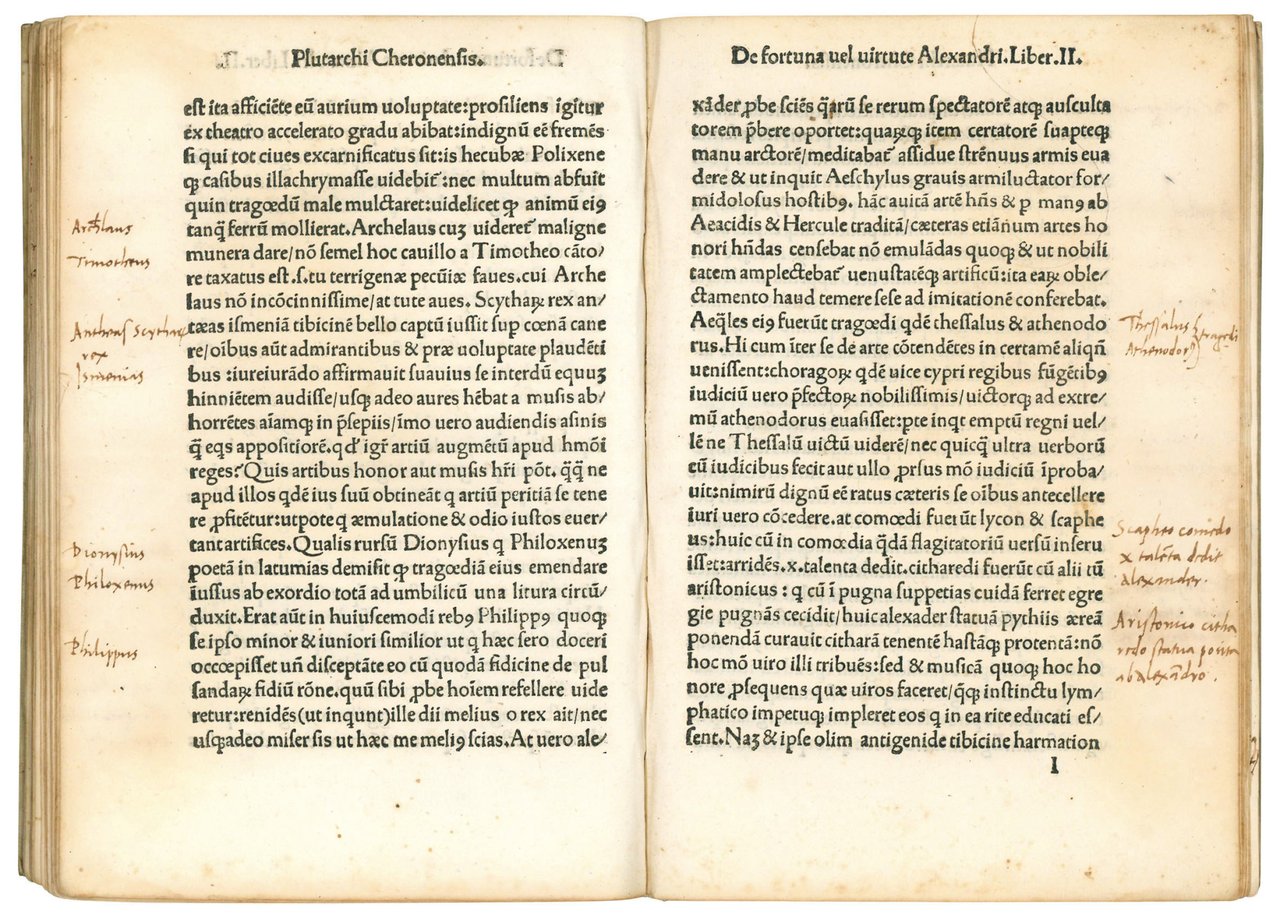 Plutarchi Cheronensis.
est ita afficiēte eū aurium uoluptate:prosiliens igitur
ex theatro accelerato gradu abibat:indignū eē fremēs
si qui tot ciues excarnificatus sit:is hecubæ Polixene
qꝫ casibus illachrymasse uidebit̄:nec multum abfuit
quin tragœdū male mulctaret:uidelicet ꝙ animū eiꝰ
tanq̄ ferrū mollierat.Archelaus cuꝫ uideret̄ maligne
munera dare/nō semel hoc cauillo a Timotheo cāto/
re taxatus est.s.tu terrigenæ pecūiæ faues.cui Arche
laus nō incōcinnissime/at tute aues. Scythaꝝ rex an/
tæas ismeniā tibicinē bello captū iussit sup cœnā cane
re/oībus aūt admirantibus & præ uoluptate plaudēti
bus :iureiurādo affirmauit suauius se interdū equuꝫ
hinniētem audisse/usqꝫ adeo aures hēbat a musis ab/
horrētes aīamqꝫ in p̄sepiis/īmo uero audiendis asinis
q̄ eqs appositiorē.qd' igr̄ artiū augmētū apud hmōi
reges?Quis artibus honor aut musis hr̄i pōt. q̄q̄ ne
apud illos qdē ius suū obtineāt q artiū peritiā se tene
re ꝓfitētur:utpote q æmulatione & odio iustos euer/
tant artifices.Qualis rursū Dionysius q Philoxenuꝫ
poetā in latumias demisit ꝙ tragœdiā eius emendare
iussus ab exordio totā ad umbilicū una litura circū/
duxit.Erat aūt in huiuscemodi rebꝰ Philippꝰ quoqꝫ
se ipso minor & iuniori similior ut q hæc sero doceri
occœpisset un̄ disceptāte eo cū quodā fidicine de pul
sandaꝝ fidiū rōne.quū sibi ꝓbe hoīem refellere uide
retur:renidēs(ut inqunt)ille dii melius o rex ait/nec
usqꝫadeo miser sis ut hæc me meliꝰ scias.At uero ale/
Archelaus
Timotheus
Antheas Scythar
rex
Ismenias
Dionysius
Philoxenus
Philippus
De fortuna uel uirtute Alexandri.Liber.II.
xāder ꝓbe sciēs q̄arū se rerum spectatorē atqꝫ ausculta
torem p̄bere oportet:quaꝝqꝫ item certatorē suapteqꝫ
manu arctorē/meditabat̄ assidue strēnuus armis eua
dere & ut inquit Aeschylus grauis armiluctator for/
midolosus hostibꝰ. hāc auitā artē hn̄s & p manꝰ ab
Aeacidis & Hercule traditā/cæteras etiān̄um artes ho
nori hn̄das censebat nō emulādas quoqꝫ & ut nobili
tatem amplectebat̄ uenustatēqꝫ artificū:ita eaꝝ oble/
ctamento haud temere sese ad imitationē conferebat.
Aeq̄les eiꝰ fuerūt tragœdi qdē thessalus & athenodo
rus.Hi cum īter se de arte cōtendētes in certamē aliqn̄
uenissent:choragoꝝ qdē uice cypri regibus fūgētibꝰ
iudiciū uero p̄fectoꝝ nobilissimis/uictorqꝫ ad extre/
mū athenodorus euasisset:pte inqt emptū regni uel/
lē ne Thessalū uictū uiderē/nec quicq̄ ultra uerborū
cū iudicibus fecit aut ullo ꝓrsus mō iudiciū īproba/
uit:nimirū dignū eē ratus cæteris se oībus antecellere
iuri uero cōcedere.at comœdi fuerūt lycon & scaphe
us:huic cū in comœdia q̄dā flagitatoriū uersū inseru
isset:arridēs.x.talenta dedit.citharedi fuerūt cū alii tū
aristonicus : q cū ī pugna suppetias cuidā ferret egre
gie pugnās cecidit/huic alexāder statuā pythiis æreā
ponendā curauit citharā tenentē hastāqꝫ protentā:nō
hoc mō uiro illi tribuēs:sed & musicā quoqꝫ hoc ho
nore ꝓsequens quæ uiros faceret/q̄qꝫ instinctu lym/
phatico impetuqꝫ impleret eos q in ea rite educati es/
sent.Naꝫ & ipse olim antigenide tibicine harmation
I
Thessalus
Athenodorꝰ
tragœdi
Scapheo comœdo
x talēta dedit
alexander.
Aristonico citha
redo statua posita
ab alexādro.